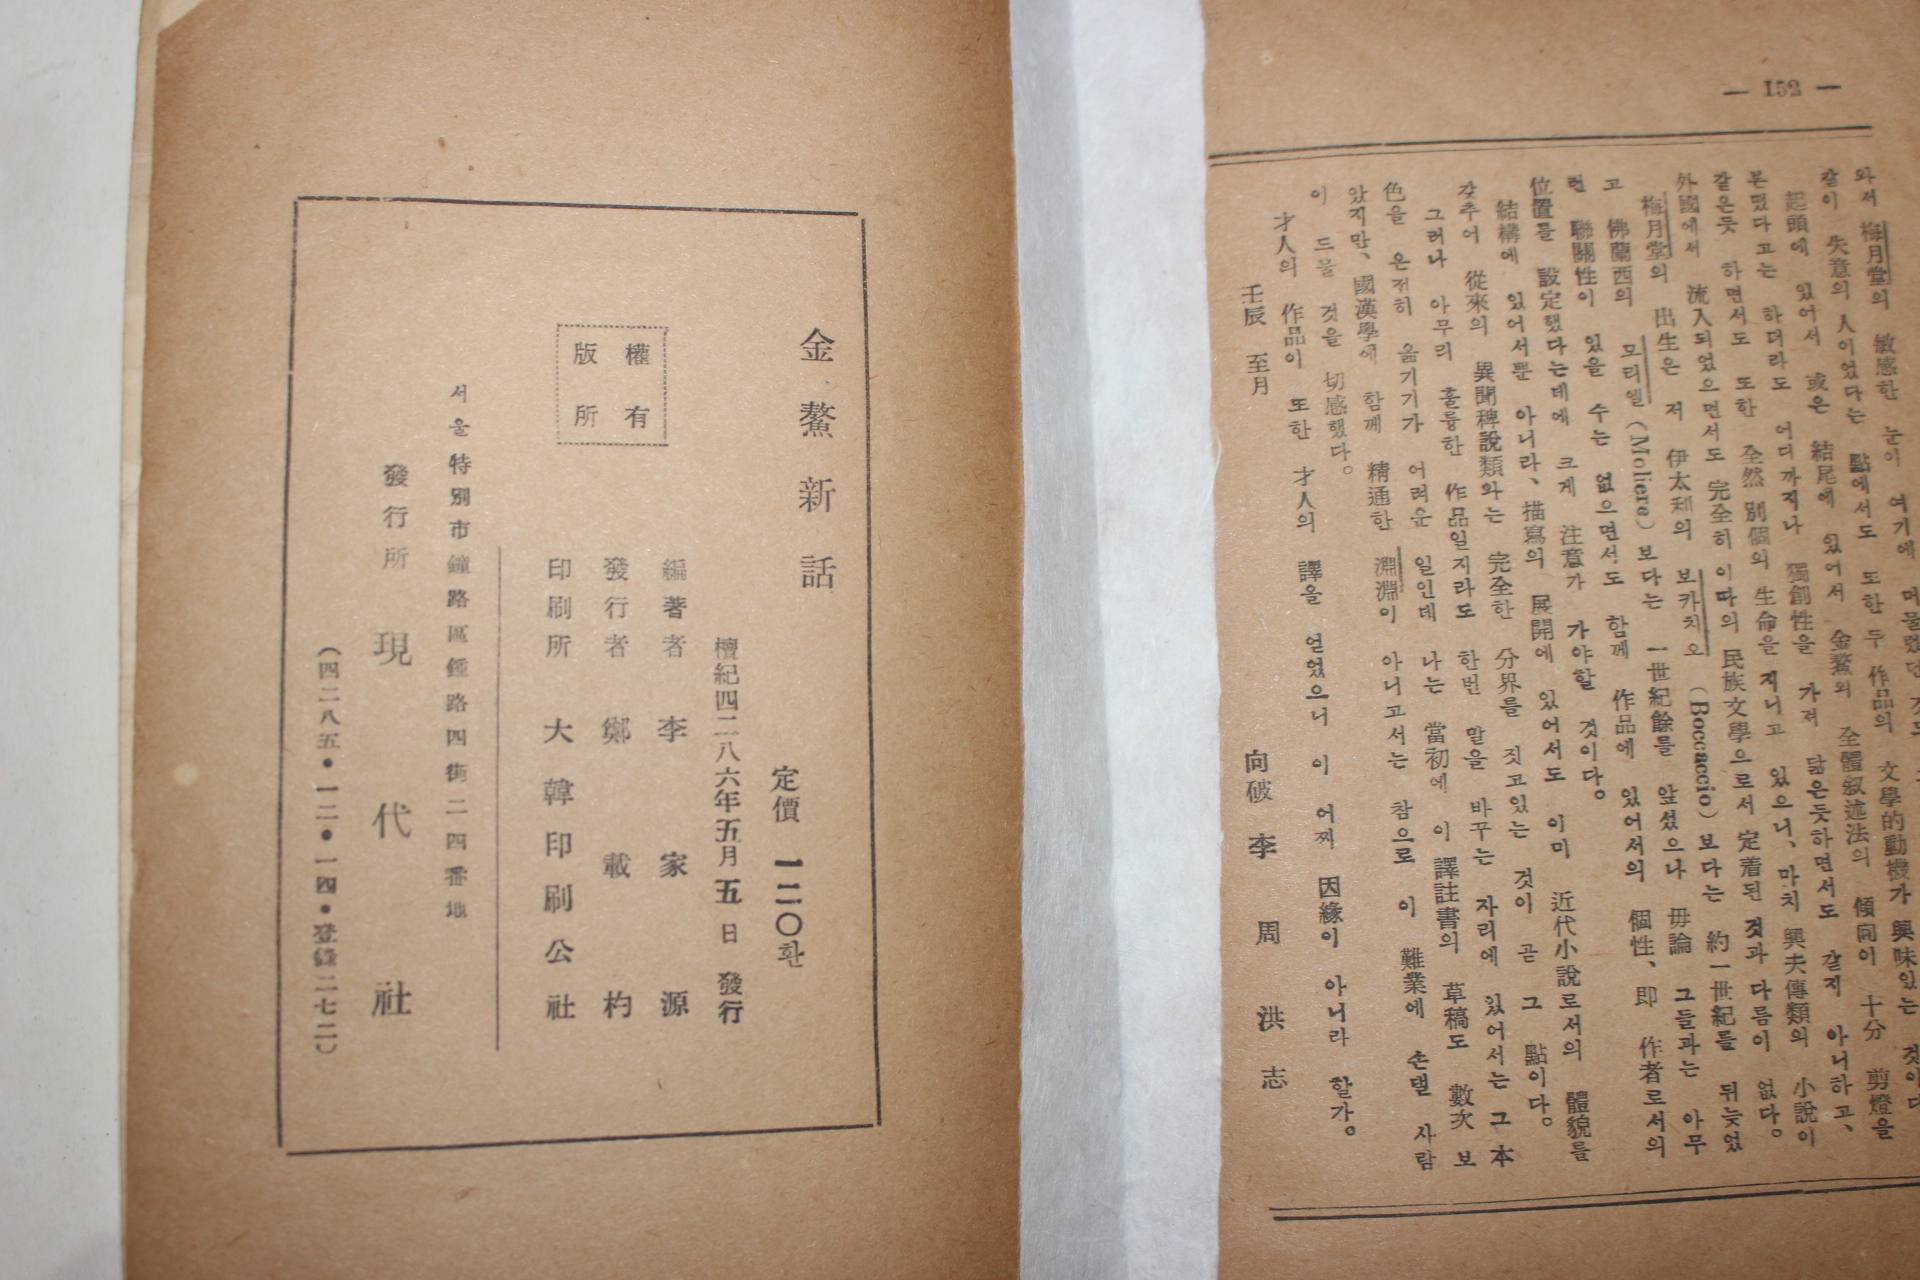 — 152 —
와서 梅月堂의 敏感한 눈이 여기에 머물렀던 것도
잠이 失意의 人이었다는 點에서도 또한 두 作品의 文學的動機가 興味있는 것이다
起頭에 있어서 或은 結尾에 있어서 金鰲의 全體敍述法의 傾向이 十分 剪燈을
본떴다고는 하더라도 어디까지나 獨創性을 가져 닮은듯하면서도 같지 아니하고、
같은듯 하면서도 또한 全然 別個의 生命을 지니고 있으니、마치 興夫傳類의 小說이
外國에서 流入되었으면서도 完全히 이따의 民族文學으로서 定着된 것과 다름이 없다。
梅月堂의 出生은 저 伊太利의 보카치오 (Boccaccio) 보다는 約一世紀를 뒤늦었
고 佛蘭西의 모리엘 (Moliere) 보다는 一世紀餘를 앞섰으나 毋論 그들과는 아무
런 聯關性이 있을 수는 없으면서도 함께 作品에 있어서의 個性、即 作者로서의
位置를 設定했다는데에 크게 注意가 가야할 것이다。
結構에 있어서뿐 아니라、描寫의 展開에 있어서도 이미 近代小說로서의 體貌를
갖추어 從來의 異聞稗說類와는 完全한 分界를 짓고있는 것이 곧 그 點이다。
그러나 아무리 훌륭한 作品일지라도 한번 말을 바꾸는 자리에 있어서는 그 本
色을 온전히 옮기기가 어려운 일인데 나는 當初에 이 譯註書의 草稿도 數次 보
았지만、國漢學에 함께 精通한 淵淵이 아니고서는 참으로 이 難業에 손댈 사람
이 드믈 것을 切感했다。
才人의 作品이 또한 才人의 譯을 얻었으니 이 어찌 因緣이 아니라 할가。
壬辰 至月
向破 李周洪 志
金鰲新話
定價 一二〇환
檀紀四二八六年五月五日 發行
編著者 李家源
發行者 鄭載杓
印刷所 大韓印刷公社
權有
版所
서울特別市鐘路區鍾路四街二四番地
發行所 現代社
(四二八五•一二•一四•登錄二七二)